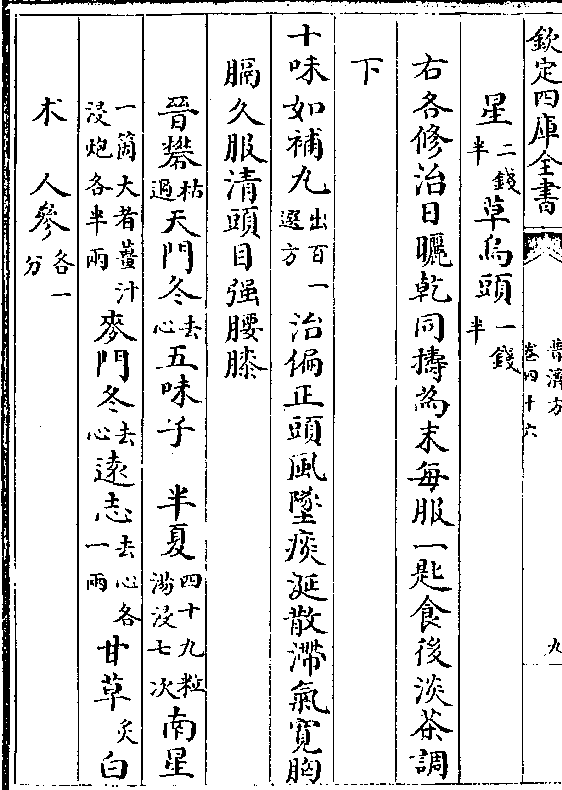 欽定四庫全書
普濟方
卷四十六
九
星二錢半草烏頭一錢半
右各修治日曬乾同擣為末每服一匙食後淡茶調
下
十味如補丸出百一選方治偏正頭風墜痰涎散滯氣寛胸
膈久服清頭目强腰膝
晉礬枯過天門冬去心五味子　半夏四十九粒湯浸七次南星
一箇大者薑汁浸炮各半兩麥門冬去心遠志去心各一兩甘草炙白
术　人參各一分